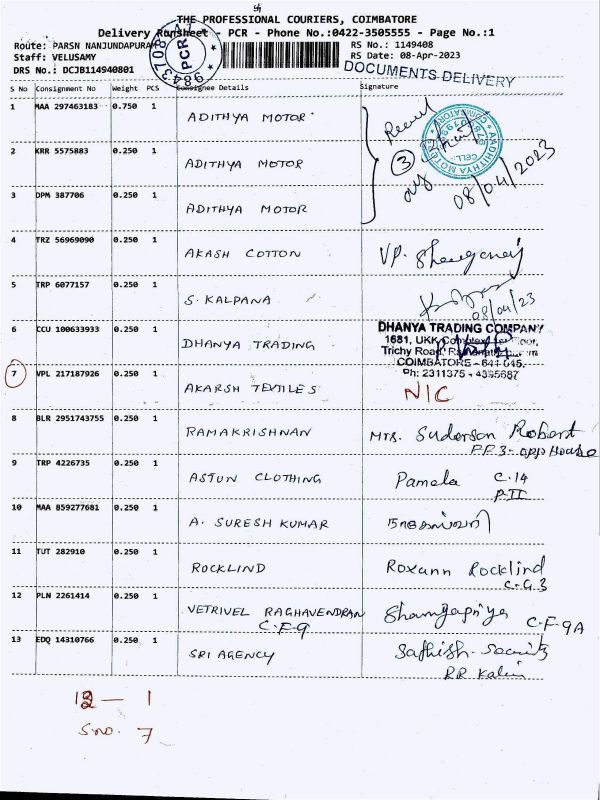 THE PROFESSIONAL COURIERS, COIMBATORE
Delivery Runsheet - PCR - Phone No.:0422-3505555 - Page No.:1
Route: PARSN NANJUNDAPURAM
RS No.: 1149408
Staff: VELUSAMY
RS Date: 08-Apr-2023
DRS No.: DCJB114940801
PCR
DOCUMENTS DELIVERY
S No Consignment No Weight PCS Consignee Details Signature
1 MAA 297463183 0.750 1 ADITHYA MOTOR
2 KRR 5575883 0.250 1 ADITHYA MOTOR
3 DPM 387706 0.250 1 ADITHYA MOTOR
3
08/04/2023
4 TRZ 56969090 0.250 1 AKASH COTTON
5 TRP 6077157 0.250 1 S. KALPANA
08/04/23
6 CCU 100633933 0.250 1 DHANYA TRADING
DHANYA TRADING COMPANY
1681, UKK
Trichy Road,
COIMBATORE - 641 045.
Ph: 2311375 - 4395687
7 VPL 217187926 0.250 1 AKARSH TEXTILES NIC
8 BLR 2951743755 0.250 1 RAMAKRISHNAN Mrs. Suderson Robert
FF3-opp House
9 TRP 4226735 0.250 1 ASTUN CLOTHING Pamela C.14
P-II
10 MAA 859277681 0.250 1 A. SURESH KUMAR
11 TUT 282910 0.250 1 ROCKLIND Roxann Rocklind
C-G3
12 PLN 2261414 0.250 1 VETRIVEL RAGHAVENDRAN
C-F-9 C-F-9A
13 EDQ 14310766 0.250 1 SRI AGENCY Sathish
1
S no. 7